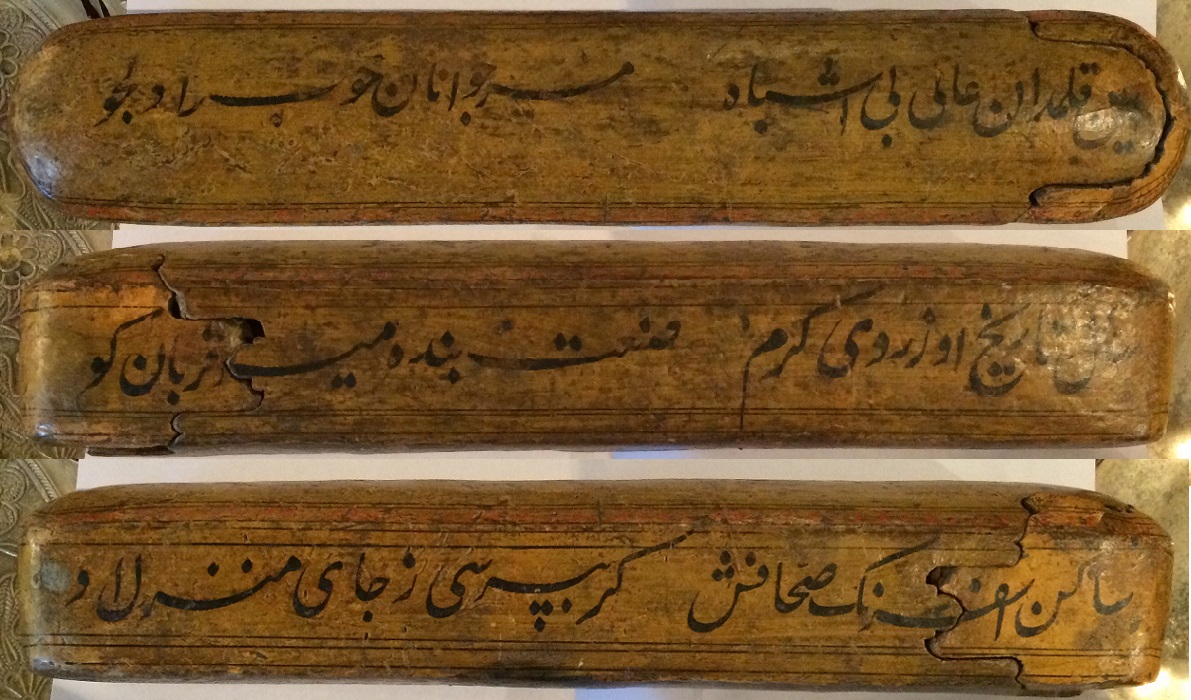 این قلمدان عالی بی اشباه میر جوانان خوب را دلجو
سال تاریخ او ز روی کرم صنعت بنده قربان کو
ساکن اسفرنک صحافش کر بپرسی ز جای منزل او